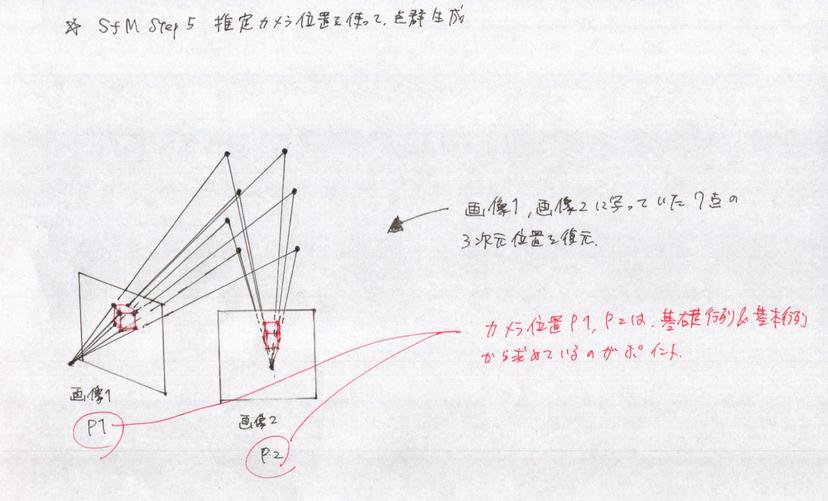 ☆ SfM Step 5 推定カメラ位置を使って、点群生成
画像1, 画像2に写っていた7点の
3次元位置を復元.
カメラ位置P1, P2は、基礎行列&基本行列
から求めているのがポイント.
画像1
P1
画像2
P.2